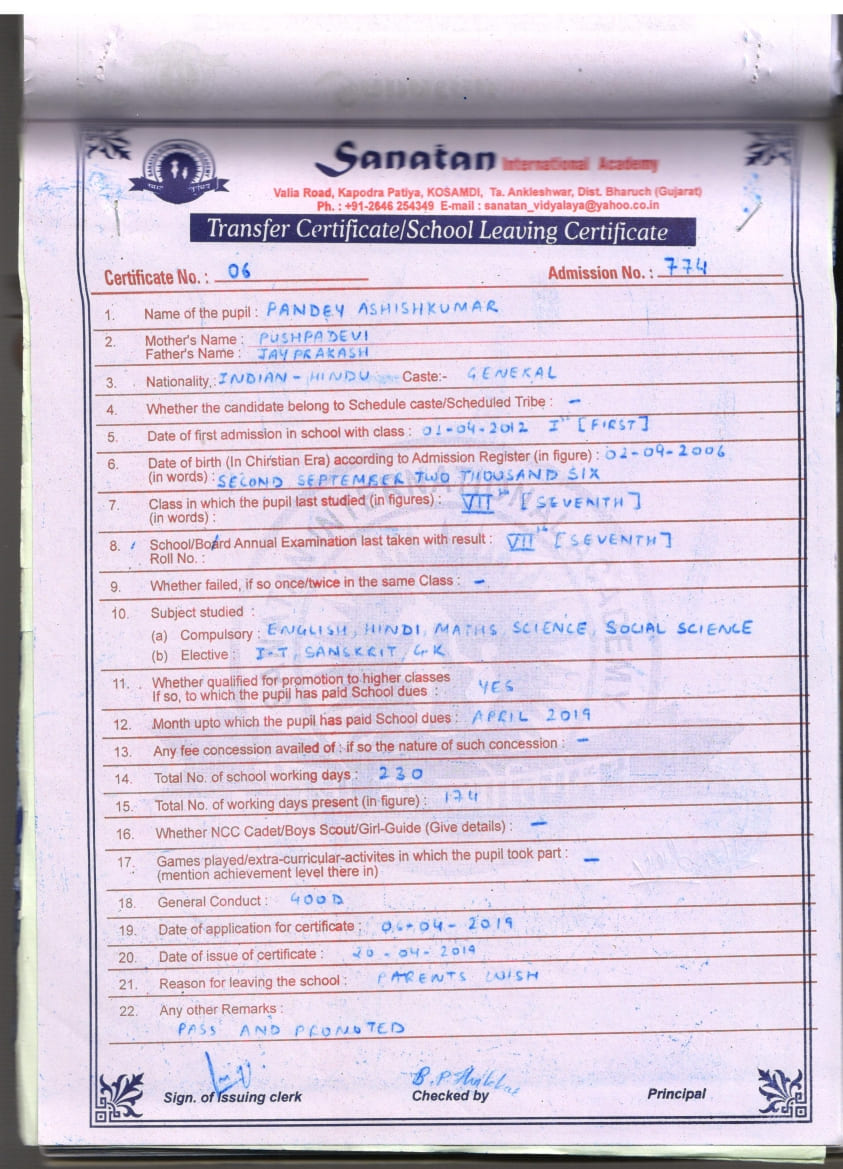 Sanatan International Academy
Valia Road, Kapodra Patiya, KOSAMDI, Ta. Ankleshwar, Dist. Bharuch (Gujarat)
Ph. : +91-2646 254349 E-mail : sanatan_vidyalaya@yahoo.co.in
Transfer Certificate/School Leaving Certificate
Certificate No. : 06 Admission No. : 774
1. Name of the pupil : PANDEY ASHISHKUMAR
2. Mother's Name : PUSHPADEVI
Father's Name : JAYPRAKASH
3. Nationality : INDIAN - HINDU Caste:- GENERAL
4. Whether the candidate belong to Schedule caste/Scheduled Tribe : -
5. Date of first admission in school with class : 01-04-2012 Ist [FIRST]
6. Date of birth (In Chirstian Era) according to Admission Register (in figure) : 02-09-2006
(in words) : SECOND SEPTEMBER TWO THOUSAND SIX
7. Class in which the pupil last studied (in figures) : VIIth [SEVENTH]
(in words) :
8. School/Board Annual Examination last taken with result : VIIth [SEVENTH]
Roll No. :
9. Whether failed, if so once/twice in the same Class : -
10. Subject studied :
(a) Compulsory : ENGLISH, HINDI, MATHS, SCIENCE, SOCIAL SCIENCE
(b) Elective : I-T, SANSKRIT, G.K
11. Whether qualified for promotion to higher classes
If so, to which the pupil has paid School dues : YES
12. Month upto which the pupil has paid School dues : APRIL 2019
13. Any fee concession availed of : if so the nature of such concession : -
14. Total No. of school working days : 230
15. Total No. of working days present (in figure) : 174
16. Whether NCC Cadet/Boys Scout/Girl-Guide (Give details) : -
17. Games played/extra-curricular-activites in which the pupil took part : -
(mention achievement level there in)
18. General Conduct : GOOD
19. Date of application for certificate : 06-04-2019
20. Date of issue of certificate : 20-04-2019
21. Reason for leaving the school : PARENTS WISH
22. Any other Remarks :
PASS AND PROMOTED
Sign. of Issuing clerk Checked by Principal